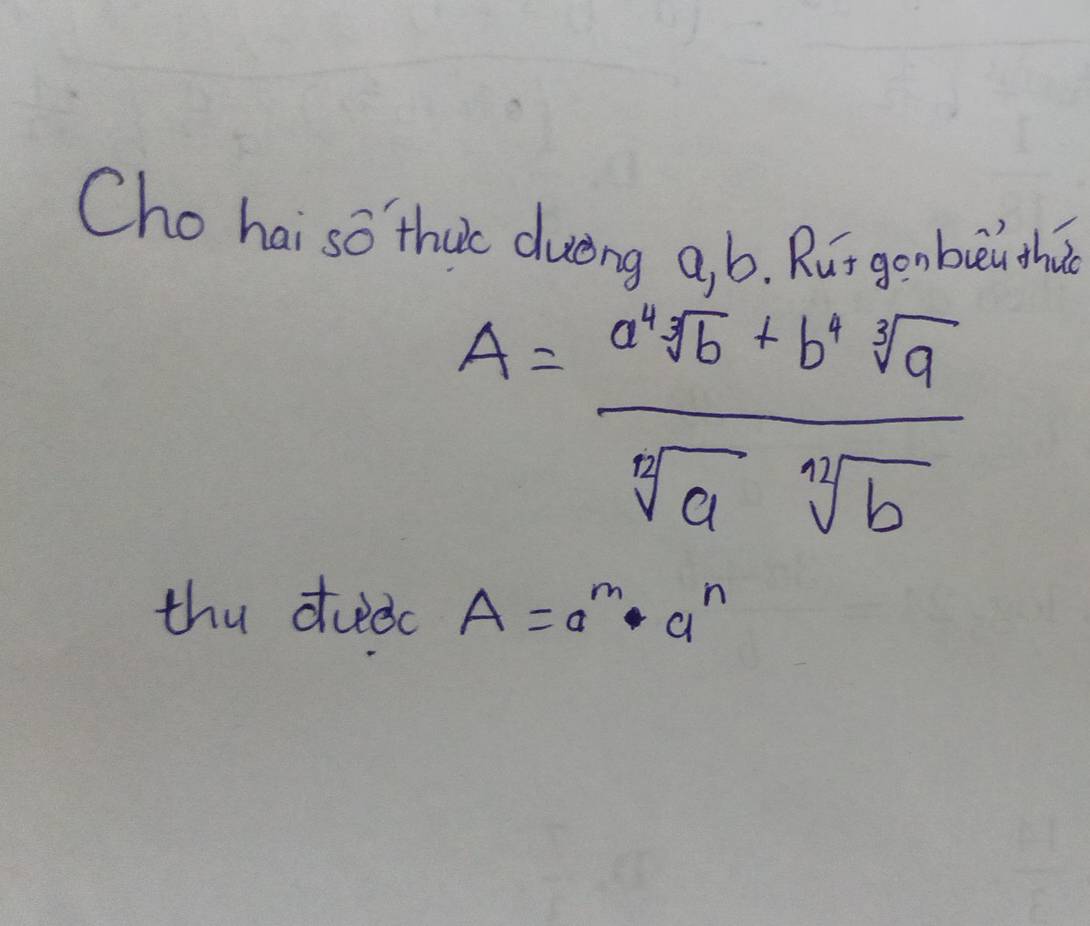 Cho hai số thực dương a,b. Rút gọn biểu thức
A = \frac{a^4 \sqrt[3]{b} + b^4 \sqrt[3]{a}}{\sqrt[12]{a} \sqrt[12]{b}}
thu được A = a^m \cdot a^n